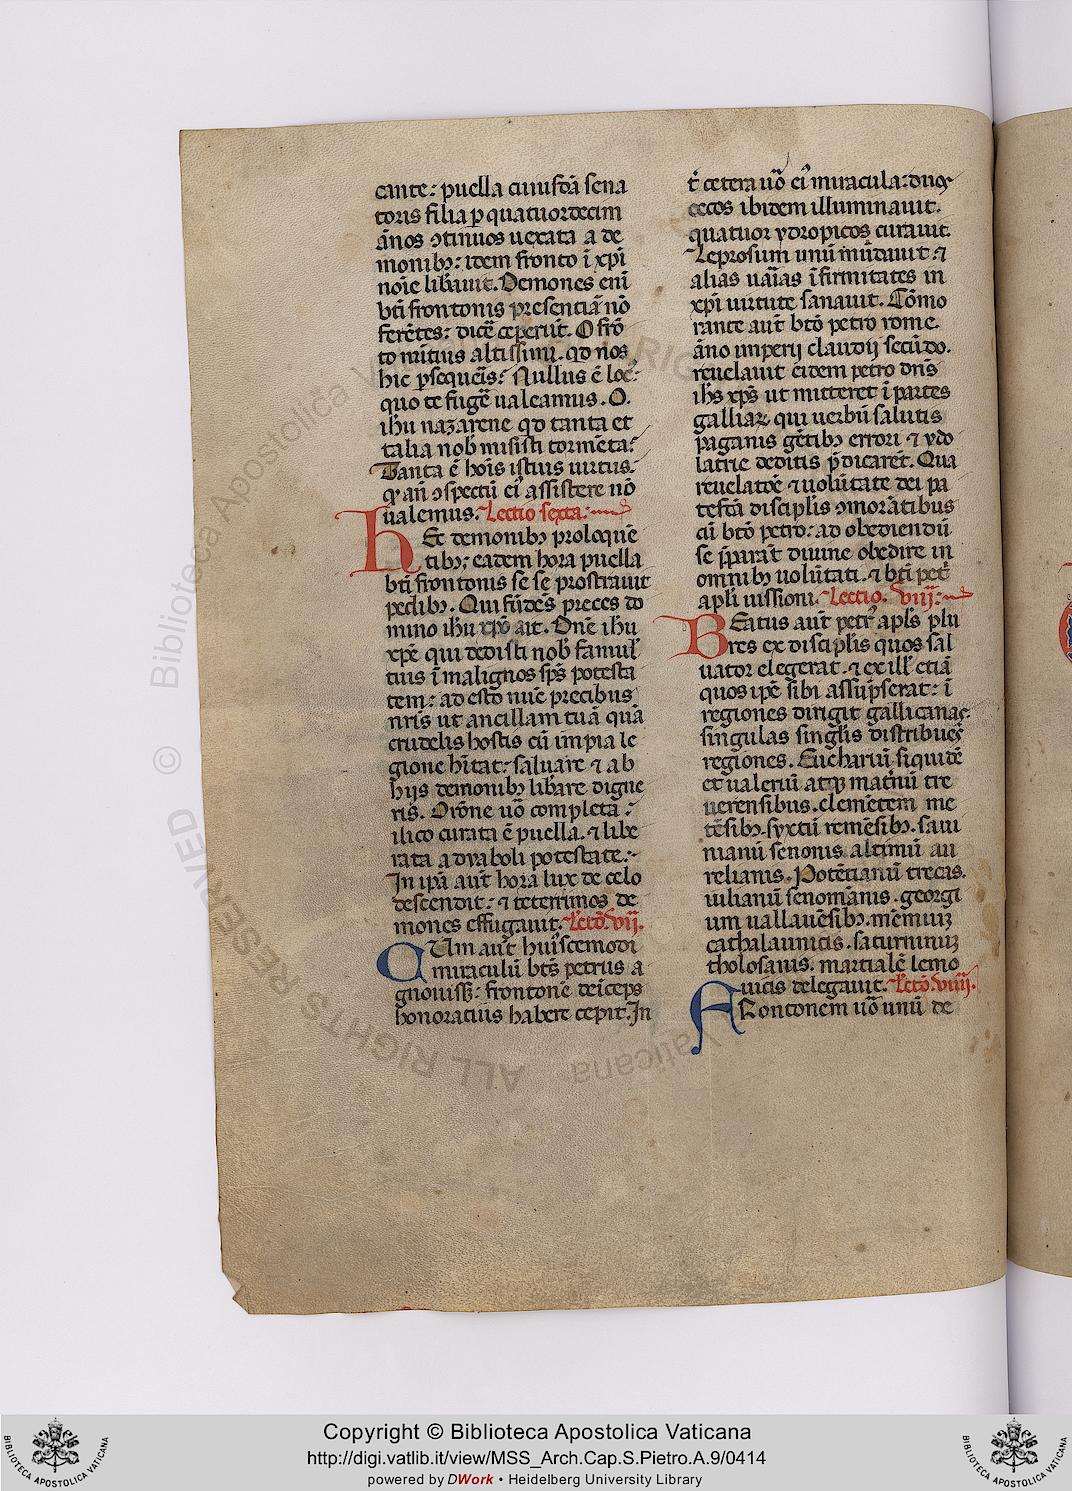 cante: puella cuiusdã sena
toris filia ꝑ quatuordecim
ãnos ↄtinuos uexata a de
monibꝫ: idem fronto ĩ xp̃i
noĩe lib̃auit. Demones eni᷑
bt̃i frontonis presenciã nõ
ferẽtes: dicẽ ceperũt. O frõ
to nũtius altissimi. qd nos
hic ꝑsequeris? Nullus ẽ loc᷒
quo te fugẽ ualeamus. O.
ih̃u nazarene qd tanta et
talia nob̃ misisti tormẽta?
Tanta ẽ hoĩs istius uirtus:
ꝙ añ ↄspectũ ei᷒ assistere nõ
ualemus. Lectio sexta:
Hec demonibꝫ proloquẽ
tibꝫ: eadem hora puella
bt̃i frontonis se se prostrauit
pedibꝫ. Qui fũdẽs preces do
mino ih̃u xp̃o ait. Dñe ih̃u
xp̃e qui dedisti nob̃ famul̃
tuis ĩ malignos sp̃s potesta
tem: ad esto nũc precibus
nr̃is ut ancillam tuã quã
crudelis hostis cũ impia le
gione hĩtat: saluare ⁊ ab
hijs demonibꝫ lib̃are digne
ris. Orõne uõ completa:
ilico curata ẽ puella. ⁊ libe
rata a dyaboli potestate:
In ip̃a aut̃ hora lux de celo
descendit: ⁊ teterrimos de
mones effugauit. Lectõ. vij.
Cum aut̃ hui᷒scemodi
miraculũ bt̃s petrus a
gnouissꝫ: frontonẽ deĩceps
honoratius habere cepit. In
t̃ cetera uõ ei᷒ miracula: duos
cecos ibidem illuminauit.
quatuor ydropicos curauit.
Leprosum unũ mũdauit: ⁊
alias uaĩas ĩfirmitates in
xp̃i uirtute sanauit. Cõmo
rante aut̃ bt̃o petro rome.
ãno imperij claudij secũdo.
reuelauit eidem petro dñs
ih̃s xp̃s ut mitteret ĩ partes
galliaꝝ qui uerbũ salutis
paganis gẽtibꝫ errori ⁊ ydo
latrie deditis p̃dicarẽt. Qua
reuelatõe ⁊ uolũtate dei pa
tefcã discipul̃is ↄmorãtibus
cũ bt̃o petro: ad obediendũ
se p̃parãt diuine obedire in
omnibꝫ uolũtati. ⁊ bt̃i pet᷑
apl̃i iussioni. Lectio. viij:
Beatus aut̃ petr᷒ apl̃s plu
res ex discipl̃is quos sal
uator elegerat. ⁊ ex ill̃ etiã
quos ip̃e sibi assũpserat: ĩ
regiones dirigit gallicanas.
singulas singl̃is distribuẽs
regiones. Eucharium siquidẽ
et ualeriũ atqꝫ mat̃nũ tre
uerensibus. clemẽtem me
tẽsibꝫ. syxtũ remẽsibꝫ. saui
nianũ senonis. altinũ au
relianis. Potẽcianũ trecas.
iulianũ senomãnis. georgi
um uallauẽsibꝫ. mẽmiuꝫ
cathalaunicis. saturninuꝫ
tholosanis. martialẽ lemo
uicis delegauit. Lectõ. viiij.
Frontonem uõ unũ de
Copyright © Biblioteca Apostolica Vaticana
http://digi.vatlib.it/view/MSS_Arch.Cap.S.Pietro.A.9/0414
powered by DWork • Heidelberg University Library